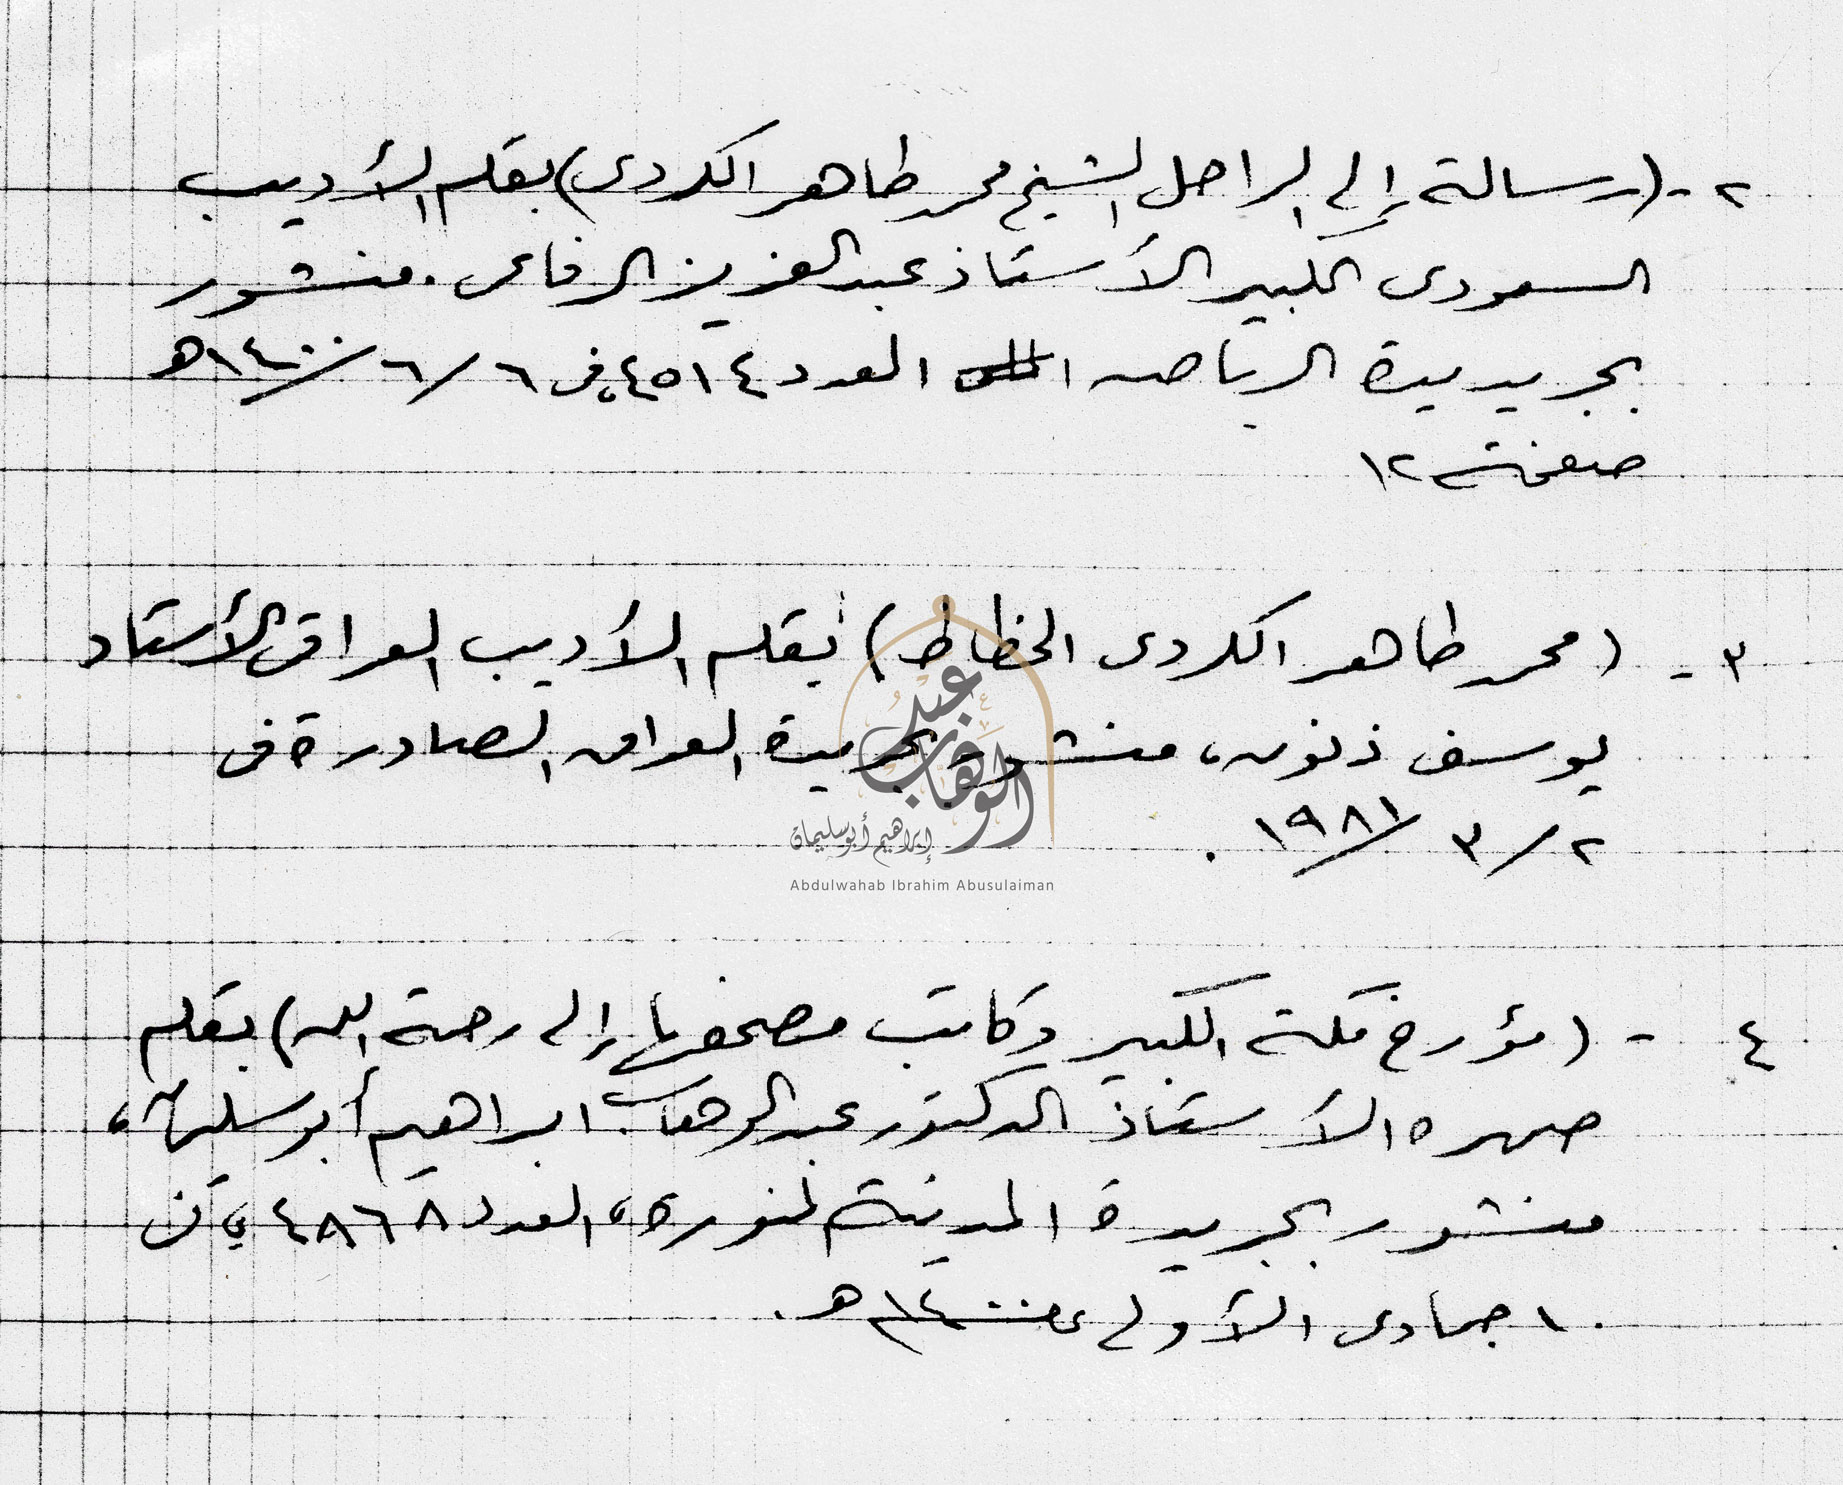 ٢ - (رسالة إلى الراحل الشيخ محمد طاهر الكردى) بقلم الأديب
السعودى الكبير الأستاذ عبد العزيز الرفاعى . منشور
بجريدة الرياض العدد ٤٥١٤، فى ٦/٦/١٤٠٠هـ
صفحة ١٢
٣ - (محمد طاهر الكردى الخطاط) بقلم الأديب العراقى الأستاذ
يوسف ذنون، منشور بجريدة العراق الصادرة فى
٢/٣/١٩٨١ .
٤ - (مؤرخ مكة الكبير وكاتب مصحفها إلى رحمة الله) بقلم
صهره الأستاذ الدكتور عبد الوهاب ابراهيم أبو سليمان،
منشور بجريدة المدينة المنورة، العدد ٤٨٦٨ فى
١٠ جمادى الأولى ١٤٠٠هـ.
عبد الوهاب
إبراهيم أبو سليمان
Abdulwahab Ibrahim Abusulaiman